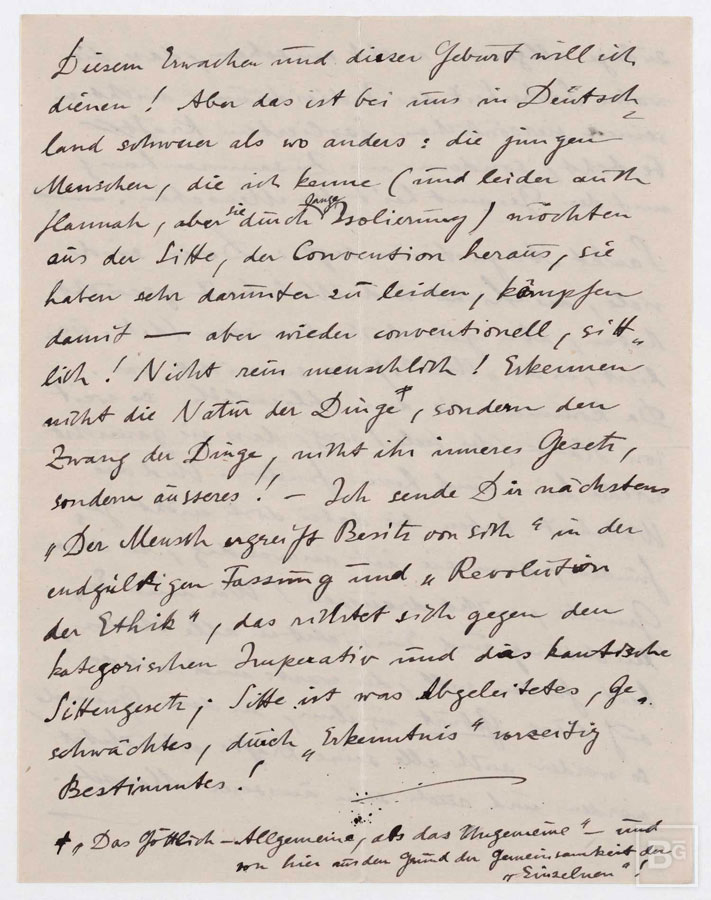 Diesem Erwachen und dieser Geburt will ich
dienen! Aber das ist bei uns in Deutsch-
land schwerer als wo anders: die jungen
Menschen, die ich kenne (und leider auch
Hannah, aber sie durch lange Isolierung) möchten
aus der Sitte, der Convention heraus, sie
haben sehr darunter zu leiden, kämpfen
damit — aber wieder conventionell, sitt„
lich! Nicht rein menschlich! Erkennen
nicht die Natur der Dinge+, sondern den
Zwang der Dinge, nicht ihr inneres Gesetz,
sondern äusseres! – Ich sende Dir nächstens
„Der Mensch ergreift Besitz von sich“ in der
endgültigen Fassung und „Revolution
der Ethik“, das richtet sich gegen den
kategorischen Imperativ und das kantische
Sittengesetz; Sitte ist was Abgeleitetes, Ge„
schwächtes, durch „Erkenntnis“ vorzeitig
Bestimmtes!
+ „Das Göttlich-Allgemeine, als das Ungemeine“ – und
von hier aus den Grund der Gemeinsamkeit der
„Einzelnen“!
BG